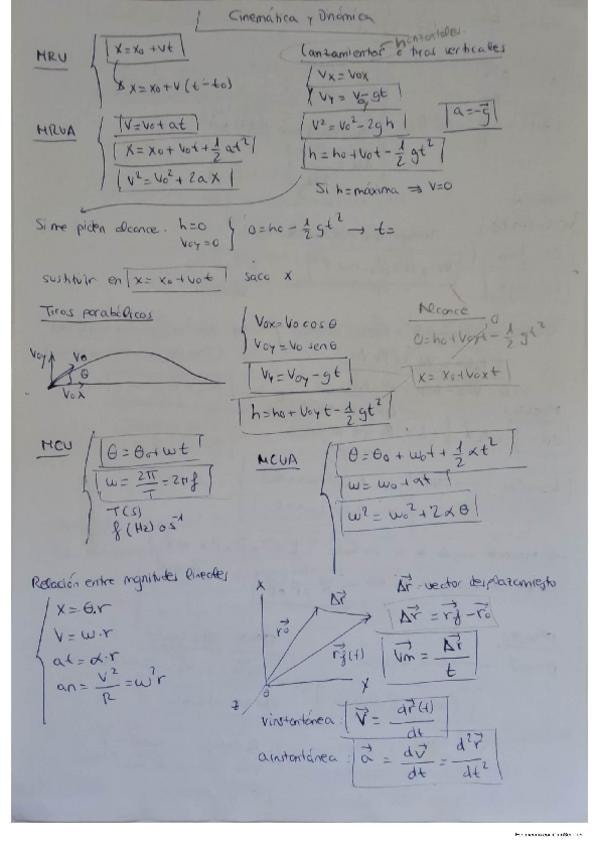 Cinemática y Dinámica
MRU
x = x0 + vt
x = x0 + v (t - t0)
Lanzamientos o tiros verticales
horizontales
Vx = V0x
Vy = V0y - gt
V² = V0² - 2gh
a = -g⃗
h = h0 + V0t - 1/2 gt²
Si h = máxima ⇒ V=0
MRUA
V = V0 + at
x = x0 + V0t + 1/2 at²
V² = V0² + 2a x
Si me piden alcance. h=0
V0y=0
0 = h0 - 1/2 gt² → t=
sustituir en x = x0 + V0t saco x
Tiros parabólicos
V0y
V0
θ
V0x
V0x = V0 cos θ
V0y = V0 sen θ
Vy = V0y - gt
h = h0 + V0y t - 1/2 gt²
Alcance
0
0 = h0 + V0yt - 1/2 gt²
x = x0 + V0xt
MCU
θ = θ0 + ωt
ω = 2π/T = 2πf
T (s)
f (Hz) o s⁻¹
MCUA
θ = θ0 + ω0t + 1/2 αt²
ω = ω0 + αt
ω² = ω0² + 2αθ
Relación entre mgnitudes lineales
x = θ.r
V = ω.r
at = α.r
an = V²/R = ω²r
x
Δr⃗
r⃗0
r⃗f(t)
θ
x
z
Δr⃗ = vector desplazamiento
Δr⃗ = r⃗f - r⃗0
V⃗m = Δr⃗/t
v instantánea: V⃗ = dr⃗(t)/dt
a instantánea: a⃗ = dv⃗/dt = d²r⃗/dt²